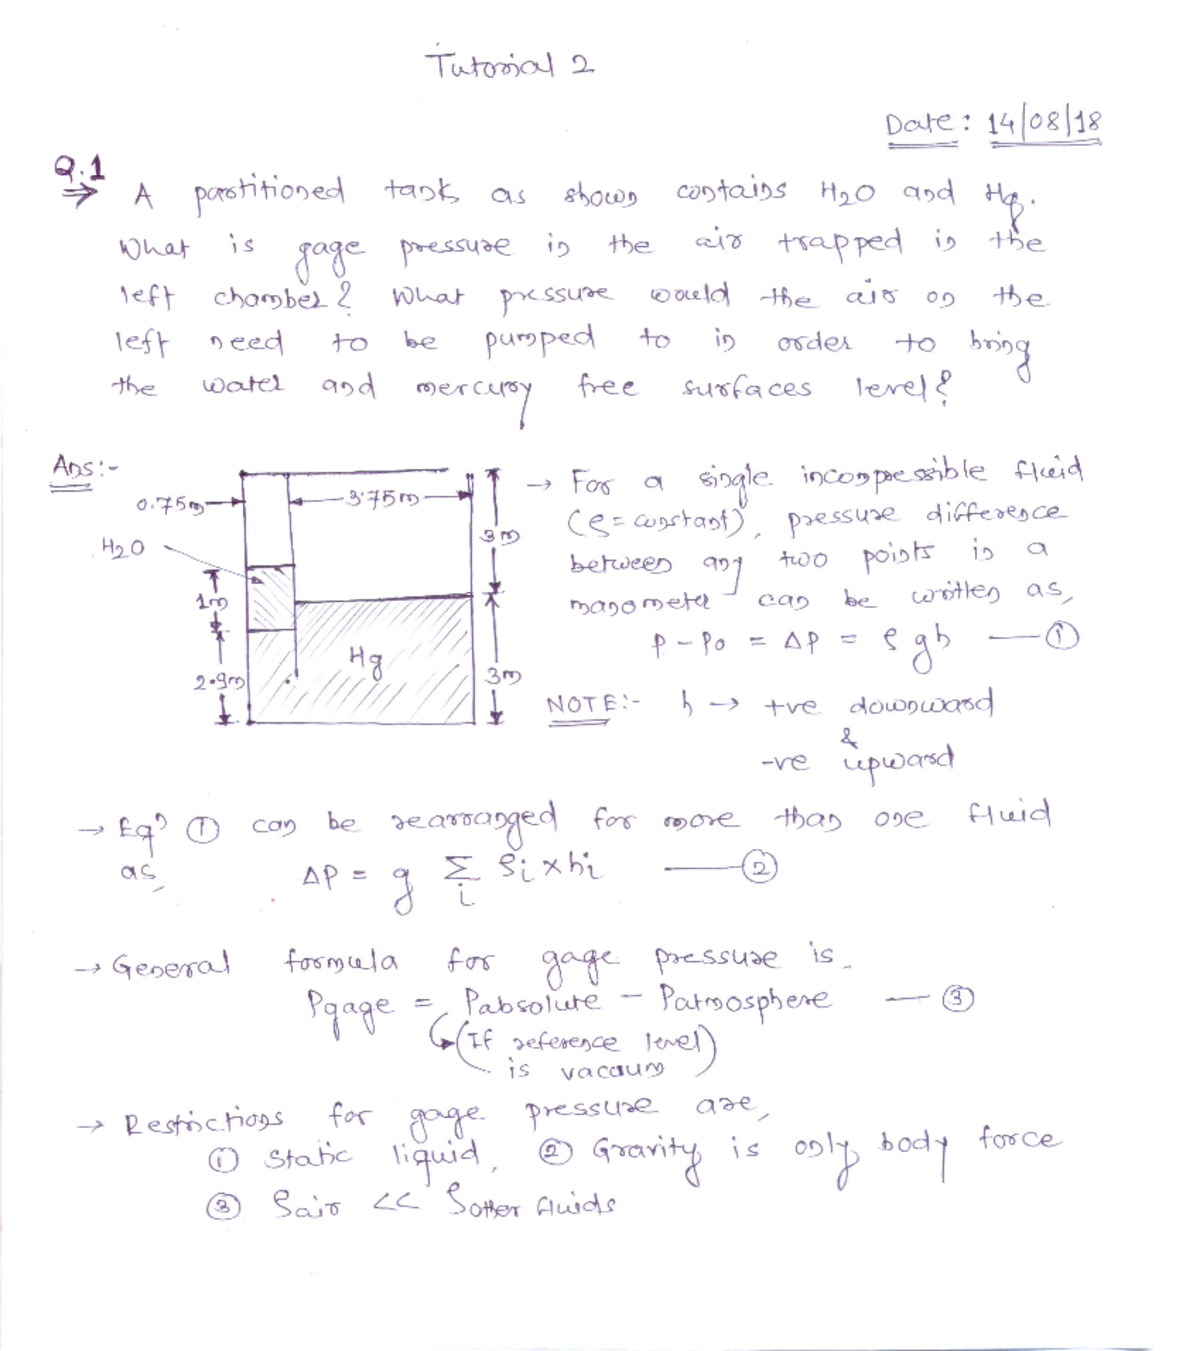 Tutorial 2
Date: 14/08/18
Q.1
A partitioned tank as shown contains H2O and Hg.
What is gage pressure in the air trapped in the
left chamber? What pressure would the air on the
left need to be pumped to in order to bring
the water and mercury free surfaces level?
Ans:-
0.75m
3.75m
H2O
3m
1m
Hg
2.9m
3m
→ For a single incompressible fluid
(ρ = constant), pressure difference
between any two points in a
manometer can be written as,
P - Po = ΔP = ρgh —①
NOTE:- h → +ve downward
&
-ve upward
→ Eqn ① can be rearranged for more than one fluid
as, ΔP = g Σi ρi x hi —②
→ General formula for gage pressure is
Pgage = Pabsolute - Patmosphere —③
(If reference level)
is vacaum
→ Restrictions for gage pressure are,
① Static liquid, ② Gravity is only body force
③ ρair << ρother fluids